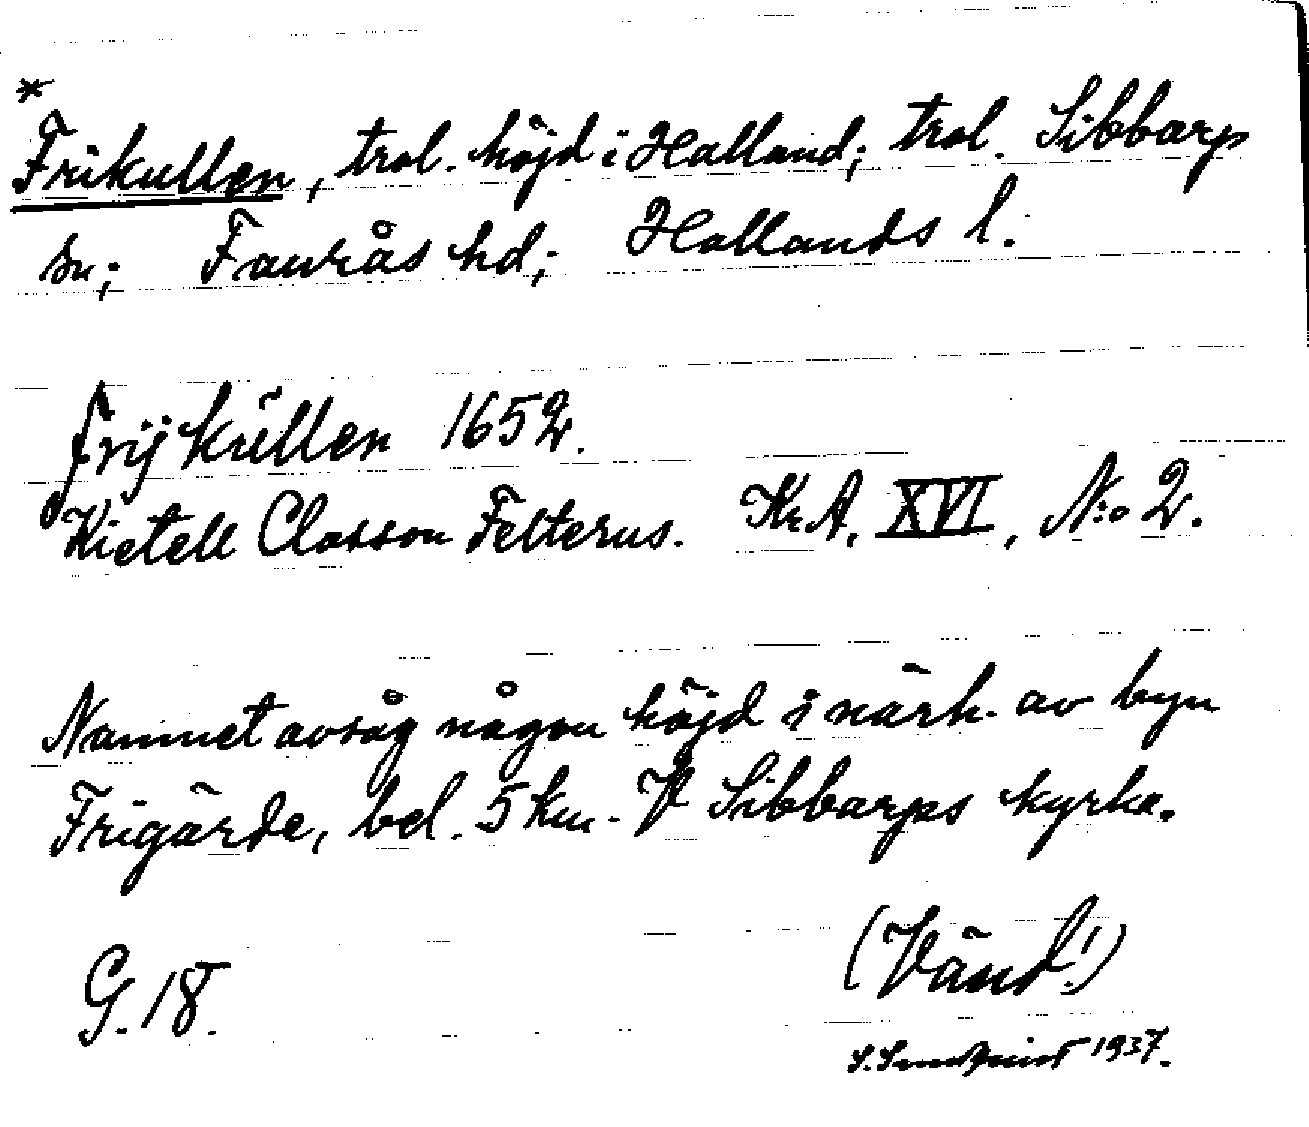 *
Frikullen, trol. höjd i Halland; trol. Sibbarp
sn; Faurås hd; Hallands l.
Frijkŭllen 1652.
Kietell Classon Felterus. Kr.A. XVI, N:o 2.
Namnet avsåg någon höjd i närh. av byn
Frigärde, bel. 5 km. V Sibbarps kyrka.
G. 18.
(Vänd!)
S. Sundqvist 1937.